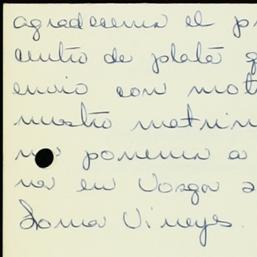 agradecemos el pr
centro de plata q
envio con moti
nuestro matrim
nos ponemos a
na en Vorga s
Loma Vineys.